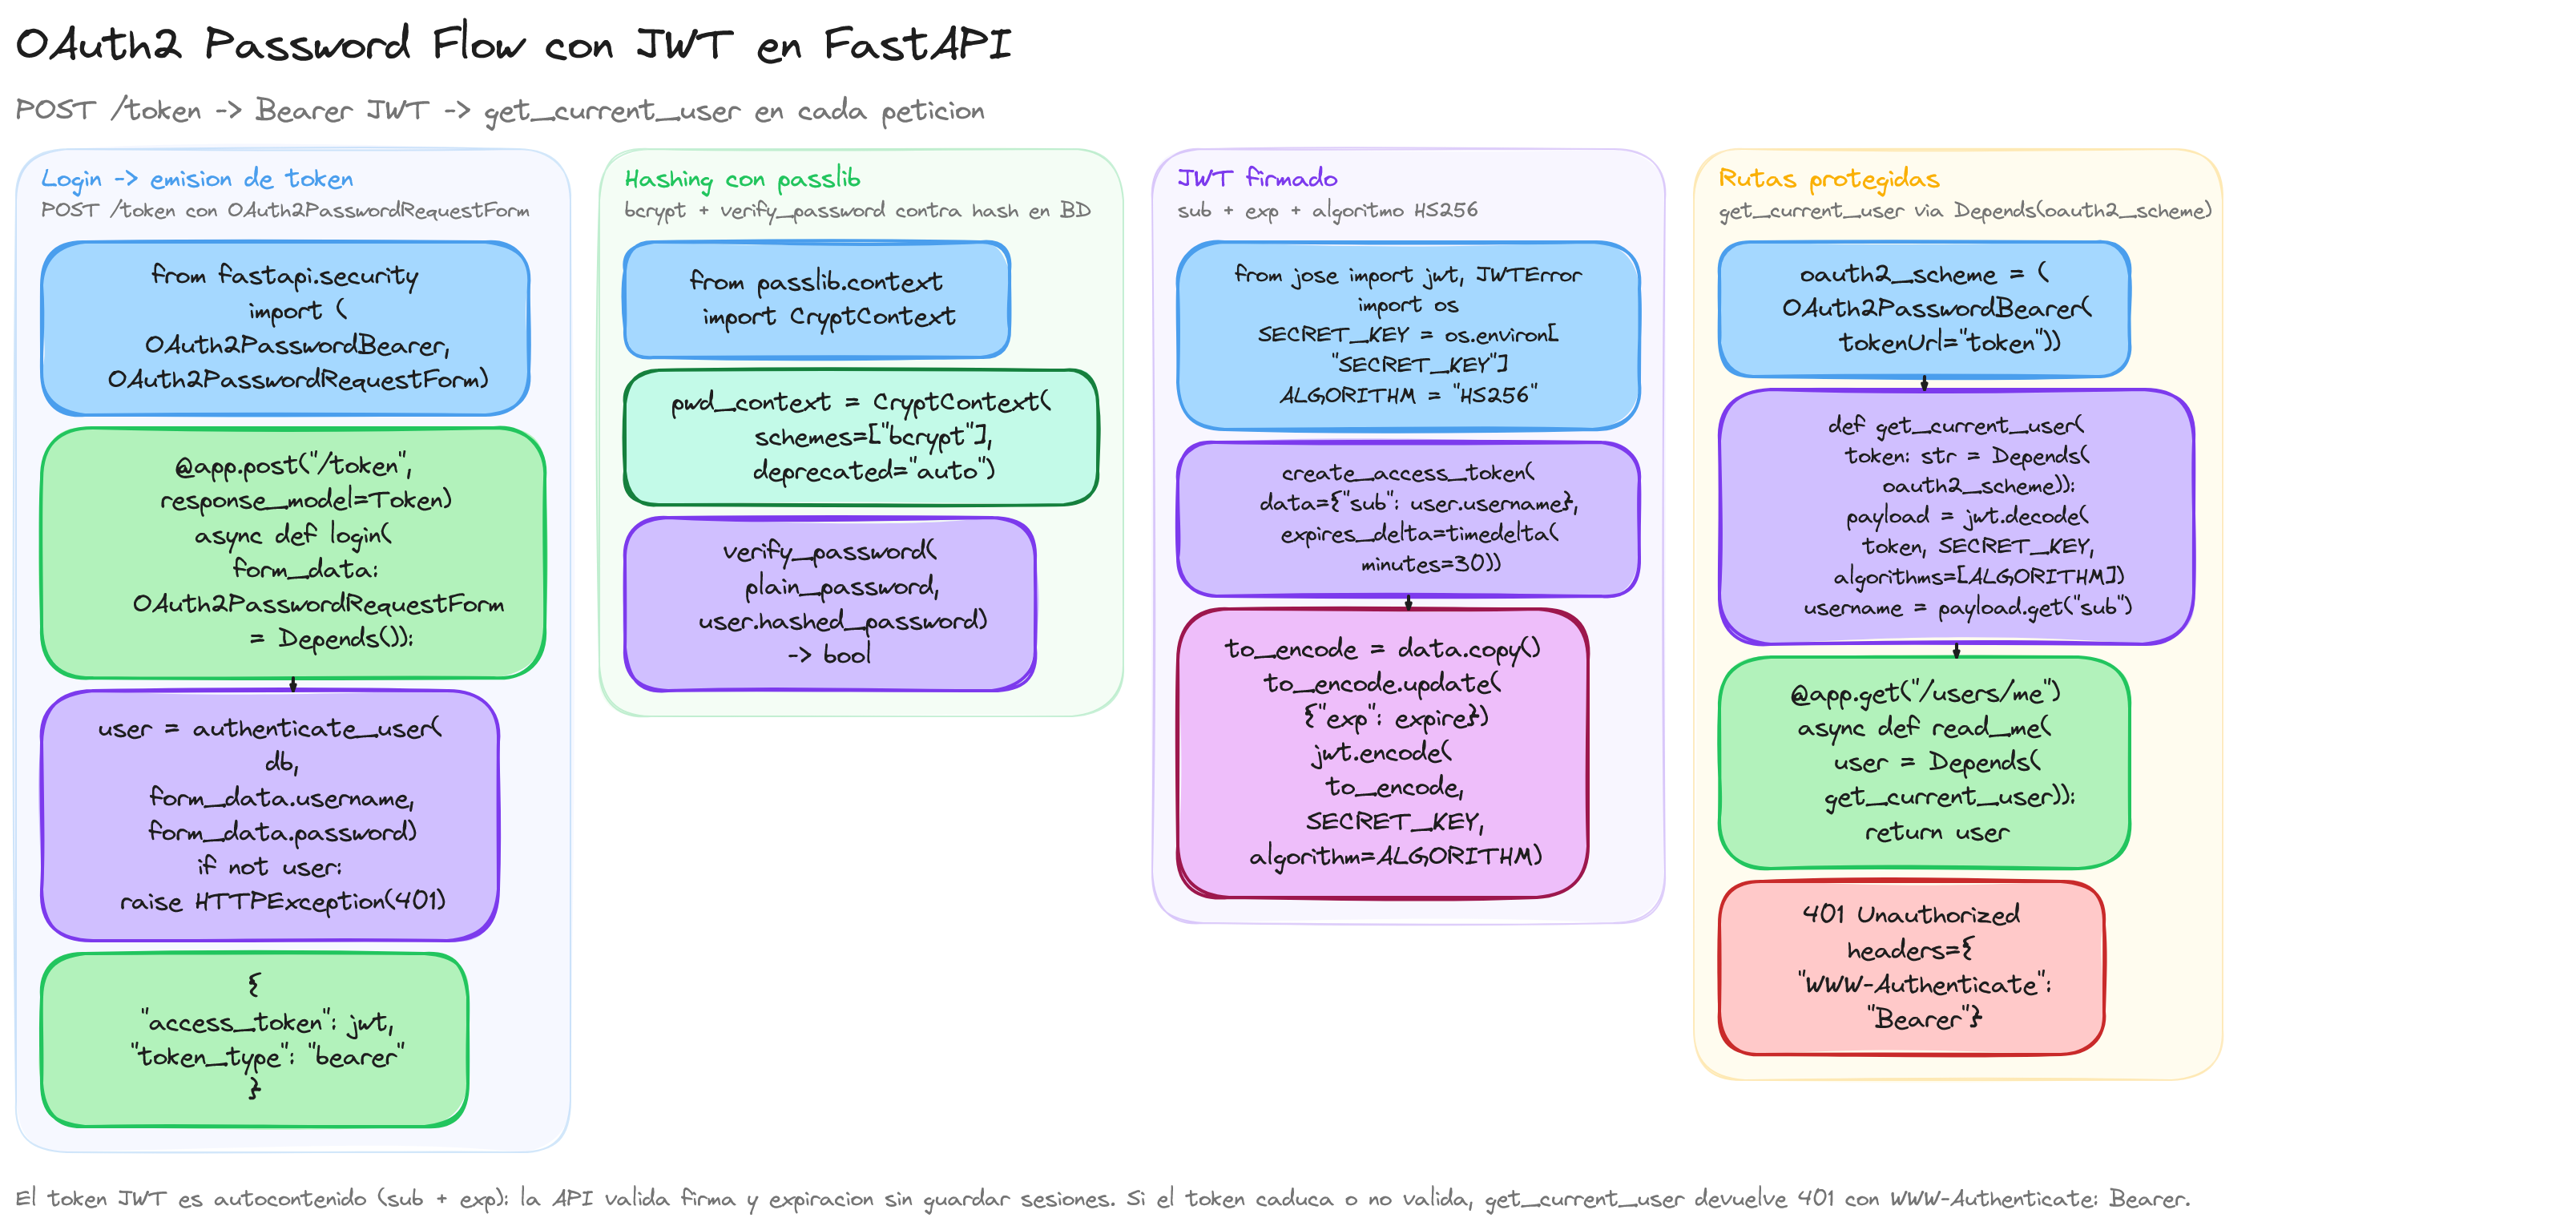 OAuth2 Password Flow con JWT en FastAPI
POST /token -> Bearer JWT -> get_current_user en cada peticion
Login -> emision de token
POST /token con OAuth2PasswordRequestForm
from fastapi.security
import (
OAuth2PasswordBearer,
OAuth2PasswordRequestForm)
@app.post("/token",
response_model=Token)
async def login(
form_data:
OAuth2PasswordRequestForm
= Depends()):
user = authenticate_user(
db,
form_data.username,
form_data.password)
if not user:
raise HTTPException(401)
{
"access_token": jwt,
"token_type": "bearer"
}
Hashing con passlib
bcrypt + verify_password contra hash en BD
from passlib.context
import CryptContext
pwd_context = CryptContext(
schemes=["bcrypt"],
deprecated="auto")
verify_password(
plain_password,
user.hashed_password)
-> bool
JWT firmado
sub + exp + algoritmo HS256
from jose import jwt, JWTError
import os
SECRET_KEY = os.environ[
"SECRET_KEY"]
ALGORITHM = "HS256"
create_access_token(
data={"sub": user.username},
expires_delta=timedelta(
minutes=30))
to_encode = data.copy()
to_encode.update(
{"exp": expire})
jwt.encode(
to_encode,
SECRET_KEY,
algorithm=ALGORITHM)
Rutas protegidas
get_current_user via Depends(oauth2_scheme)
oauth2_scheme = (
OAuth2PasswordBearer(
tokenUrl="token"))
def get_current_user(
token: str = Depends(
oauth2_scheme)):
payload = jwt.decode(
token, SECRET_KEY,
algorithms=[ALGORITHM])
username = payload.get("sub")
@app.get("/users/me")
async def read_me(
user = Depends(
get_current_user)):
return user
401 Unauthorized
headers={
"WWW-Authenticate":
"Bearer"}
El token JWT es autocontenido (sub + exp): la API valida firma y expiracion sin guardar sesiones. Si el token caduca o no valida, get_current_user devuelve 401 con WWW-Authenticate: Bearer.